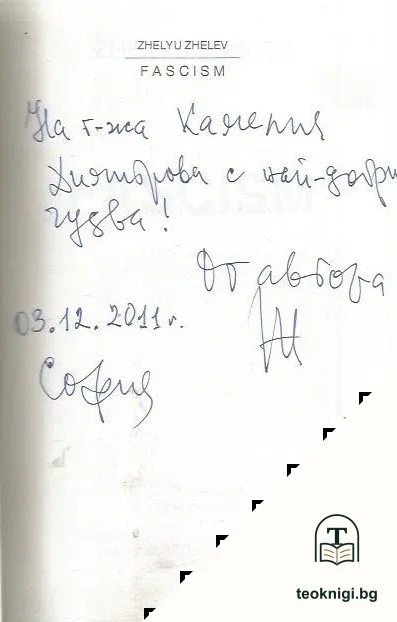 ZHELYU ZHELEV
FASCISM
На г-жа Калерия
Димтрова с най-добри
чувства!
От автора
03.12.2011 г.
София
teoknigi.bg